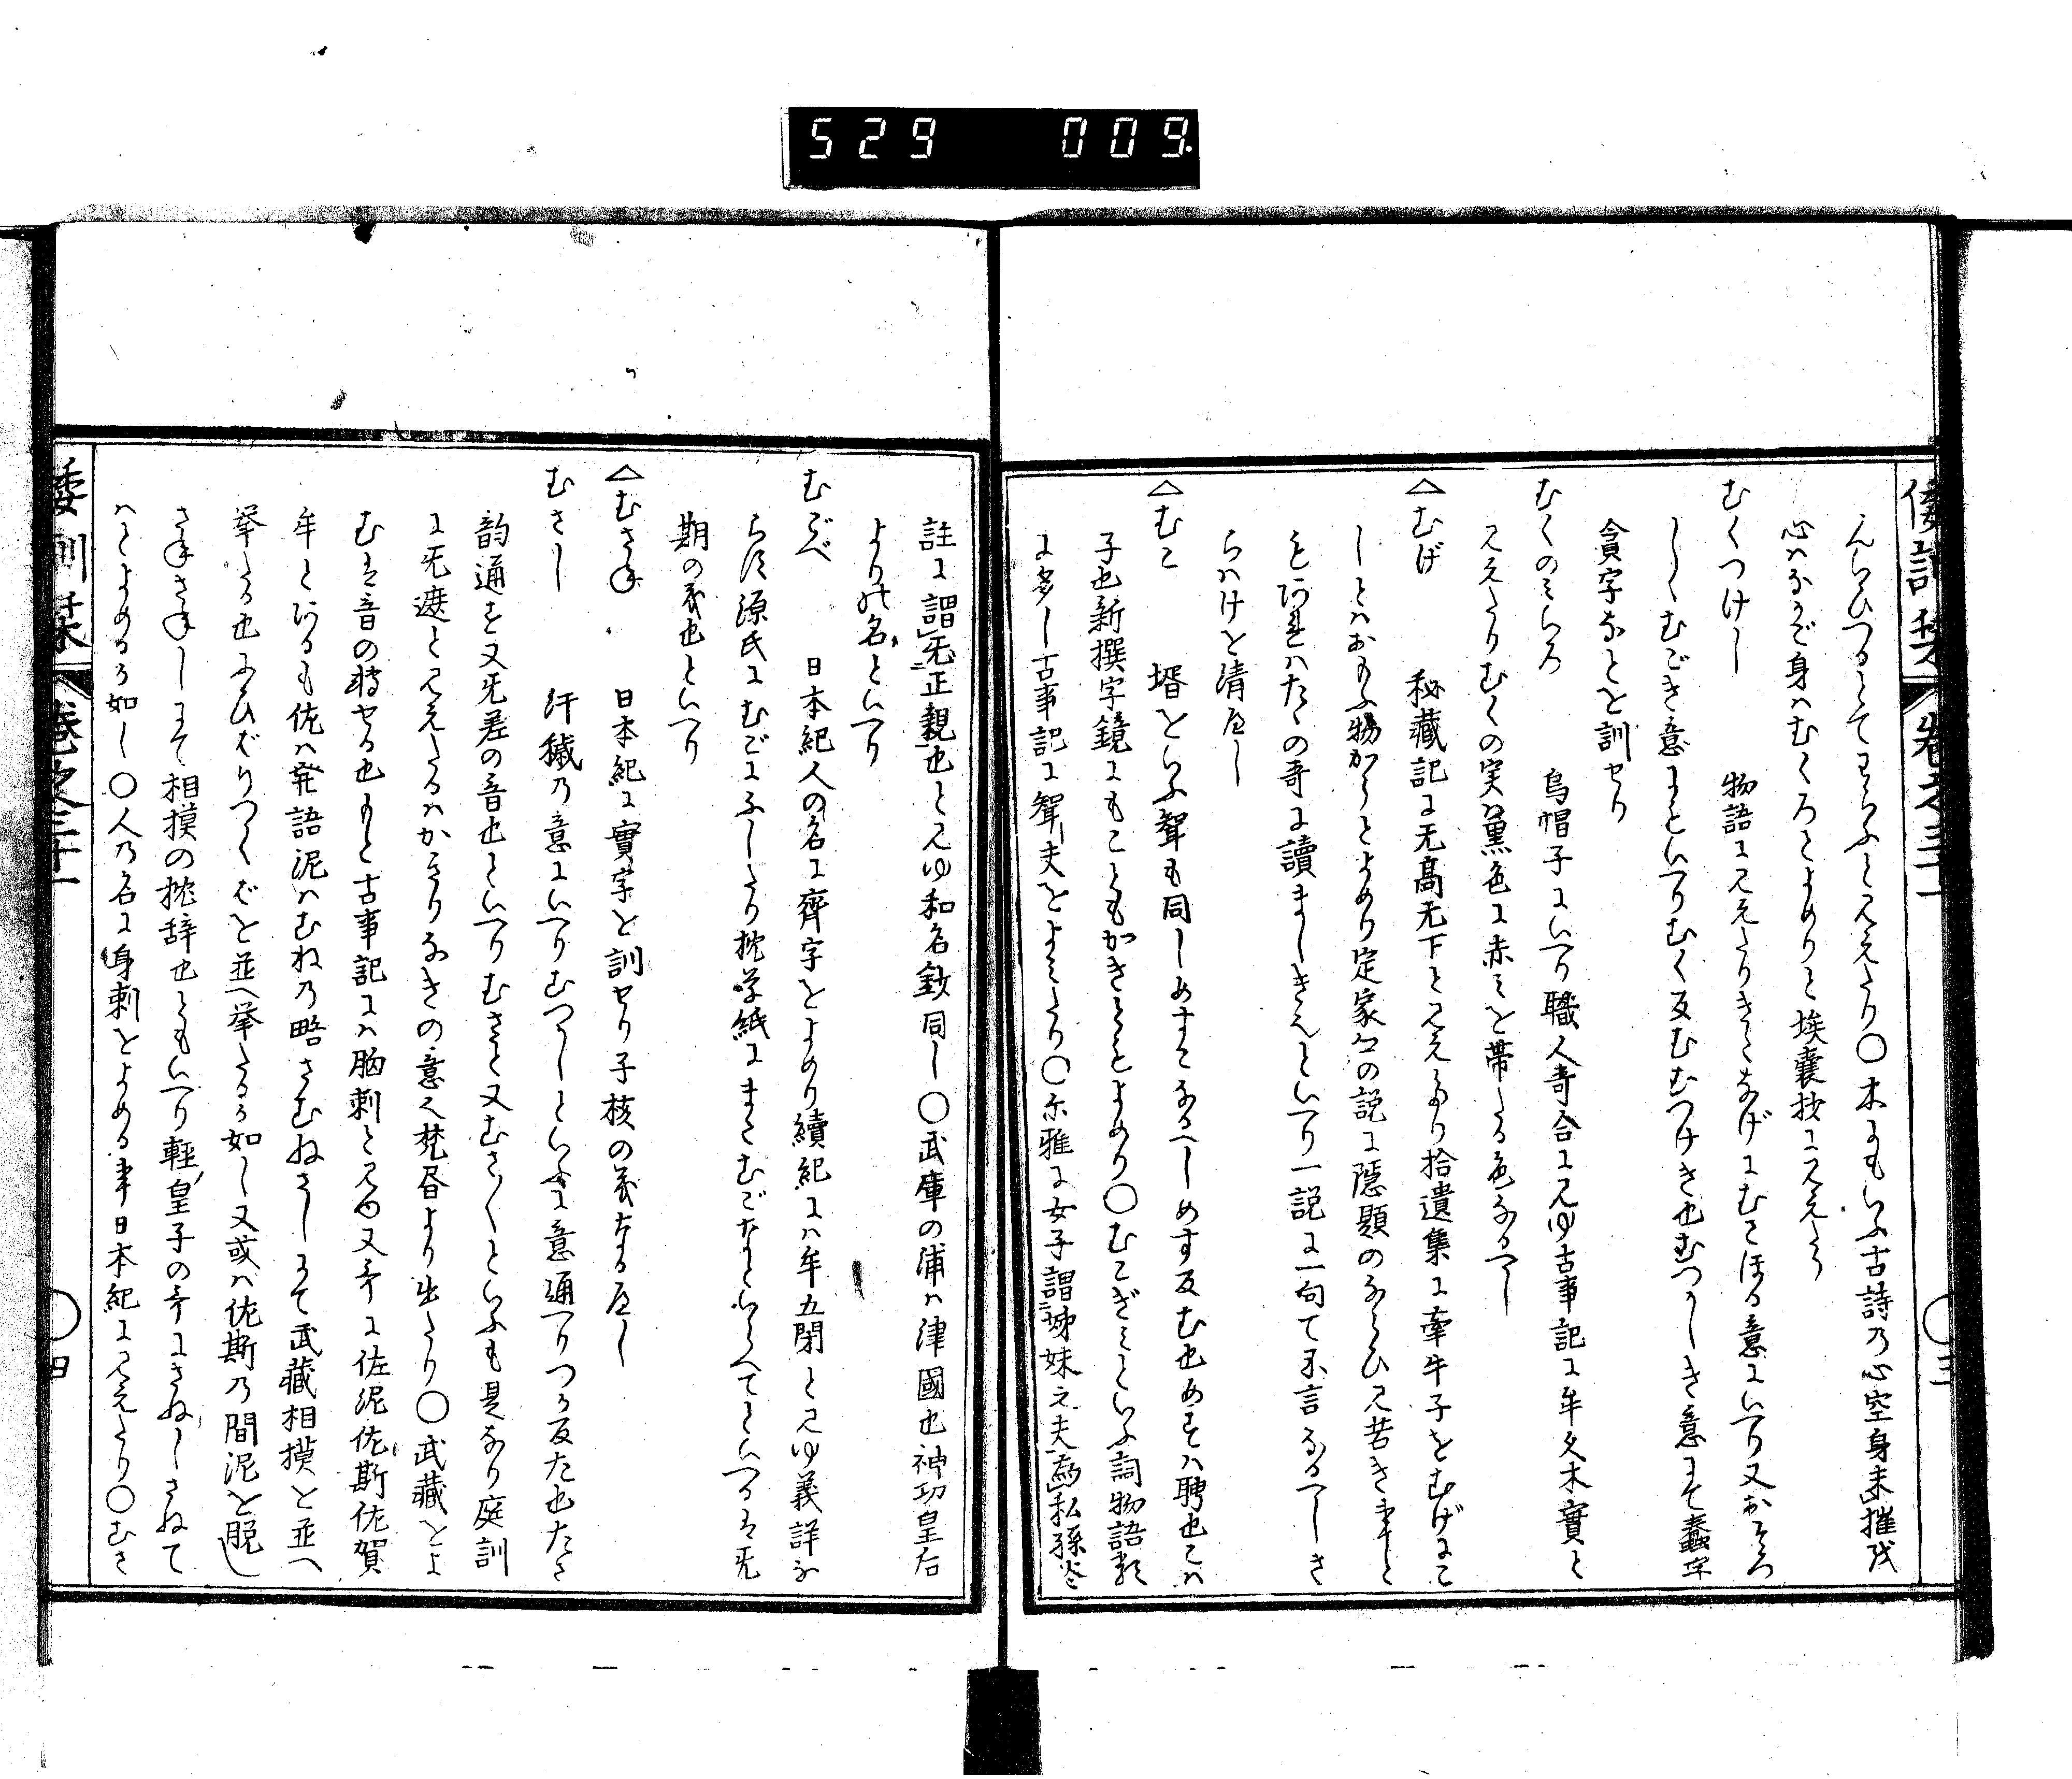 529 009.
倭訓栞 卷之三十一 ○三
んらひつるとてわらふと見えたり○木にもいふ古詩乃心空身未摧伐
心ハなかで身ハむくろとよめりと埃囊抄に見えたり
むくつけし 物語に見えたりきたなげにむこほる意にいへり又おそろ
しくむごき意にといへりむく反むむつけき也むつかしき意にて蠢字
貪字なとを訓せり
むくのみいろ 烏帽子にいへり職人哥合に見ゆ古事記に牟久木實と
見えたりむくの実ハ黒色に赤みを帯したる色なるへし
△むげ 秘藏記に无高无下と見えたり拾遺集に牽牛子をむげにこ
しとハおもふ物からとよめり定家仝の説に隱題のならひ見苦き事と
も
らハけと清へし
△むこ 壻をいふ聟も同しめすこなるへしめす反む也めすハ聘也こハ
子也新撰字鏡にもこともかきことよめり○むこぎみといふ詞物語類
に多し古事記に聟夫とよみたり○尓雅に女子謂姉妹之夫爲私孫炎
註に謂无正親也と見ゆ和名鈔同し○武庫の浦ハ津國也神功皇后
より此名といへり
むごべ 日本紀人の名に齊字をよめり續紀にハ牟五閇と見ゆ義詳な
らす源氏にむごにふしたり枕草紙にまたむごならへてといへるは无
期の義也といへり
△むさね 日本紀に實字を訓せり子核の義なるへし
むさし 汗穢乃意にいへりむつかしといふに意通へりつか反た也たさ
韵通を又无差の音也といへりむさと又むさくといふも是なり庭訓
に无遮と見えたるハかきりなきの意也梵昏より出たり○武藏とよ
むは音の轉せる也もと古事記にハ胸刺と見ゆ又哥に佐泥佐斯佐賀
牟とあるも佐ハ発語泥ハむね乃略さむねさしにて武藏相摸と並へ
挙たる也ふひばりつくばと並へ挙たるか如し又或ハ佐斯乃間泥と脱し
さねさねしにて相摸の枕辞也ともいへり軽皇子の哥にさぬしさねて
ハとよめるか如し○人乃名に身刺とよめる事日本紀に見えたり○むさ
倭訓栞 卷之三十一 ○四